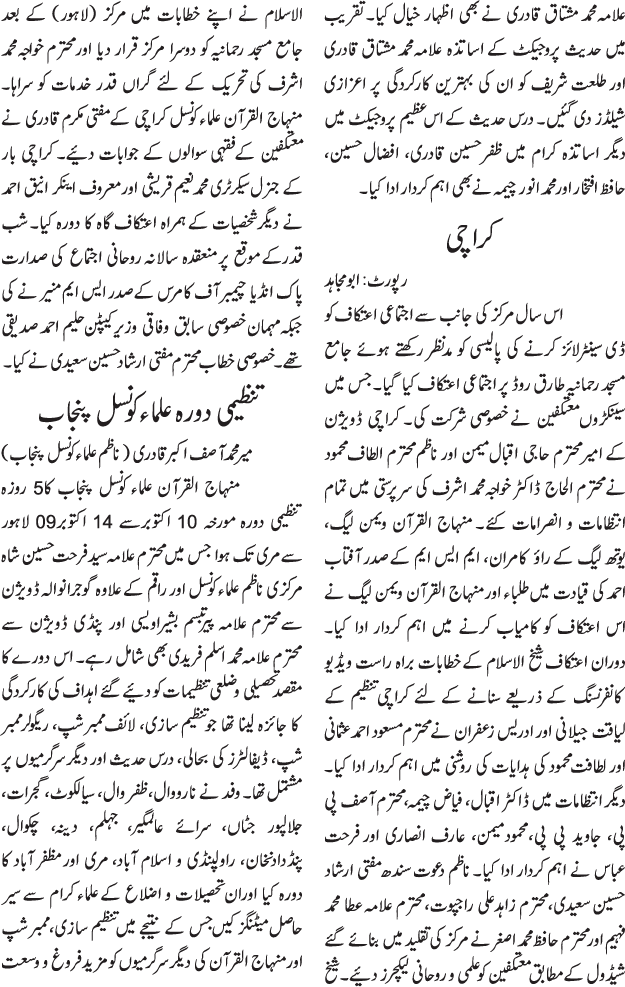 علامہ محمد مشتاق قادری نے بھی اظہار خیال کیا۔ تقریب
میں حدیث پروجیکٹ کے اساتذہ علامہ محمد مشتاق قادری
اور طلعت شریف کو ان کی بہترین کارکردگی پر اعزازی
شیلڈز دی گئیں۔ درس حدیث کے اس عظیم پروجیکٹ میں
دیگر اساتذہ کرام میں ظفر حسین قادری، افضال حسین،
حافظ افتخار اور محمد انور چیمہ نے بھی اہم کردار ادا کیا۔
کراچی
رپورٹ: ابو مجاہد
اس سال مرکز کی جانب سے اجتماعی اعتکاف کو
ڈی سینٹرلائز کرنے کی پالیسی کو مدنظر رکھتے ہوئے جامع
مسجد رحمانیہ طارق روڈ پر اجتماعی اعتکاف کیا گیا۔ جس میں
سینکڑوں معتکفین نے خصوصی شرکت کی۔ کراچی ڈویژن
کے امیر محترم حاجی اقبال میمن اور ناظم محترم الطاف محمود
نے محترم الحاج ڈاکٹر خواجہ محمد اشرف کی سرپرستی میں تمام
انتظامات و انصرامات کئے۔ منہاج القرآن ویمن لیگ،
یوتھ لیگ کے راؤ کامران، ایم ایس ایم کے صدر آفتاب
احمد کی قیادت میں طلباء اور منہاج القرآن ویمن لیگ نے
اس اعتکاف کو کامیاب کرنے میں اہم کردار ادا کیا۔
دوران اعتکاف شیخ الاسلام کے خطابات براہ راست ویڈیو
کانفرنسنگ کے ذریعے سنانے کے لئے کراچی تنظیم کے
لیاقت جیلانی اور ادریس زعفران نے محترم مسعود احمد عثمانی
اور لطافت محمود کی ہدایات کی روشنی میں اہم کردار ادا کیا۔
دیگر انتظامات میں ڈاکٹر اقبال، فیاض چیمہ، محترم آصف پی
پی، جاوید پی پی، محمود میمن، عارف انصاری اور فرحت
عباس نے اہم کردار ادا کیا۔ ناظم دعوت سندھ مفتی ارشاد
حسین سعیدی، محترم زاہد علی راجپوت، محترم علامہ عطا محمد
فہیم اور محترم حافظ محمد اصغر نے مرکز کی تقلید میں بنائے گئے
شیڈول کے مطابق معتکفین کو علمی و روحانی لیکچرز دیئے۔ شیخ
الاسلام نے اپنے خطابات میں مرکز (لاہور) کے بعد
جامع مسجد رحمانیہ کو دوسرا مرکز قرار دیا اور محترم خواجہ محمد
اشرف کی تحریک کے لئے گراں قدر خدمات کو سراہا۔
منہاج القرآن علماء کونسل کراچی کے مفتی مکرم قادری نے
معتکفین کے فقہی سوالوں کے جوابات دیئے۔ کراچی بار
کے جنرل سیکرٹری محمد نعیم قریشی اور معروف اینکر انیق احمد
نے دیگر شخصیات کے ہمراہ اعتکاف گاہ کا دورہ کیا۔ شب
قدر کے موقع پر منعقدہ سالانہ روحانی اجتماع کی صدارت
پاک انڈیا چیمبر آف کامرس کے صدر ایس ایم منیر نے کی
جبکہ مہمان خصوصی سابق وفاقی وزیر کیپٹن حلیم احمد صدیقی
تھے۔ خصوصی خطاب محترم مفتی ارشاد حسین سعیدی نے کیا۔
تنظیمی دورہ علماء کونسل پنجاب
میر محمد آصف اکبر قادری (ناظم علماء کونسل پنجاب)
منہاج القرآن علماء کونسل پنجاب کا 5 روزہ
تنظیمی دورہ مورخہ 10 اکتوبر سے 14 اکتوبر 09 لاہور
سے مری تک ہوا جس میں محترم علامہ سید فرحت حسین شاہ
مرکزی ناظم علماء کونسل اور راقم کے علاوہ گوجرانوالہ ڈویژن
سے محترم علامہ پیر تبسم بشیر اویسی اور پنڈی ڈویژن سے
محترم علامہ محمد اسلم فریدی بھی شامل رہے۔ اس دورے کا
مقصد تحصیلی و ضلعی تنظیمات کو دیئے گئے اہداف کی کارکردگی
کا جائزہ لینا تھا جو تنظیم سازی، لائف ممبر شپ، ریگولر ممبر
شپ، ڈیفالٹرز کی بحالی، درس حدیث اور دیگر سرگرمیوں پر
مشتمل تھا۔ وفد نے نارووال، ظفر وال، سیالکوٹ، گجرات،
جلالپور جٹاں، سرائے عالمگیر، جہلم، دینہ، چکوال،
پنڈدادنخان، راولپنڈی و اسلام آباد، مری اور مظفر آباد کا
دورہ کیا اور ان تحصیلات و اضلاع کے علماء کرام سے سیر
حاصل میٹنگز کیں جس کے نتیجے میں تنظیم سازی، ممبر شپ
اور منہاج القرآن کی دیگر سرگرمیوں کو مزید فروغ و وسعت